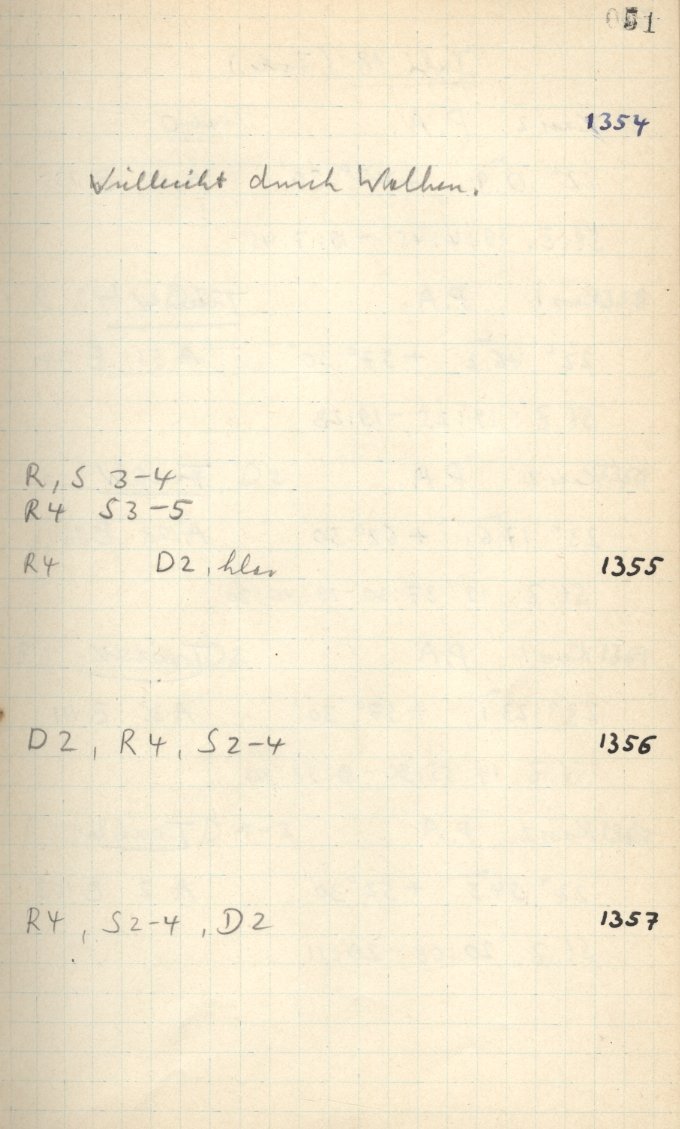 051
1354
Vielleicht durch Wolken.
R, S 3-4
R4 S3-5
R4 D2, klar 1355
D2, R4, S2-4 1356
R4, S2-4, D2 1357